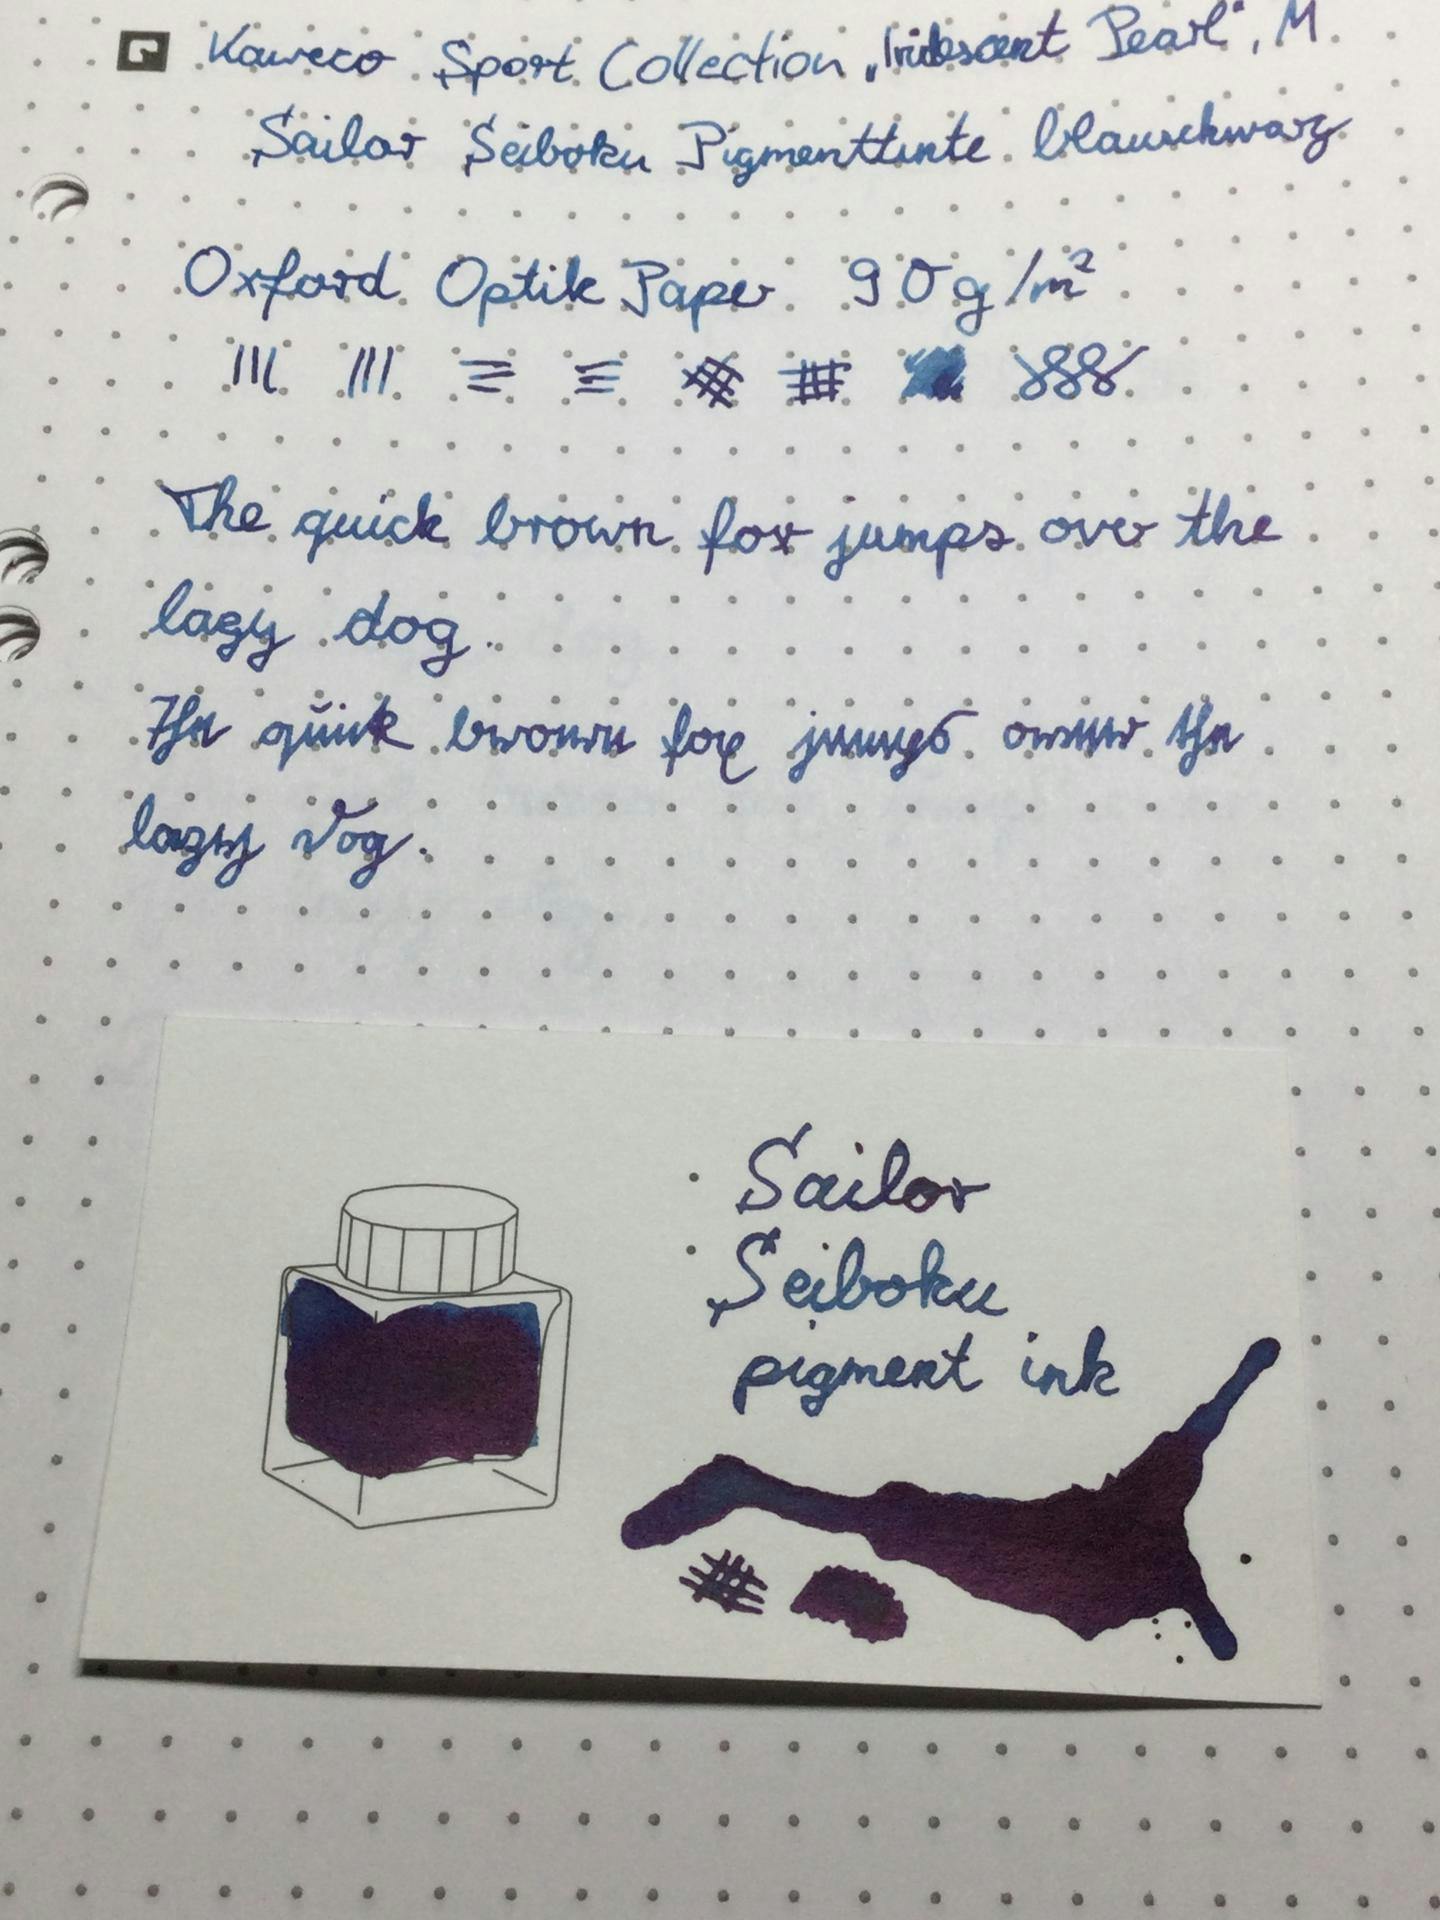 Kaweco Sport Collection „Iridescent Pearl“, M
Sailor Seiboku Pigmenttinte blauschwarz
Oxford Optik Paper 90g/m²
The quick brown fox jumps over the
lazy dog.
The quick brown fox jumps over the
lazy dog.
Sailor
Seiboku
pigment ink